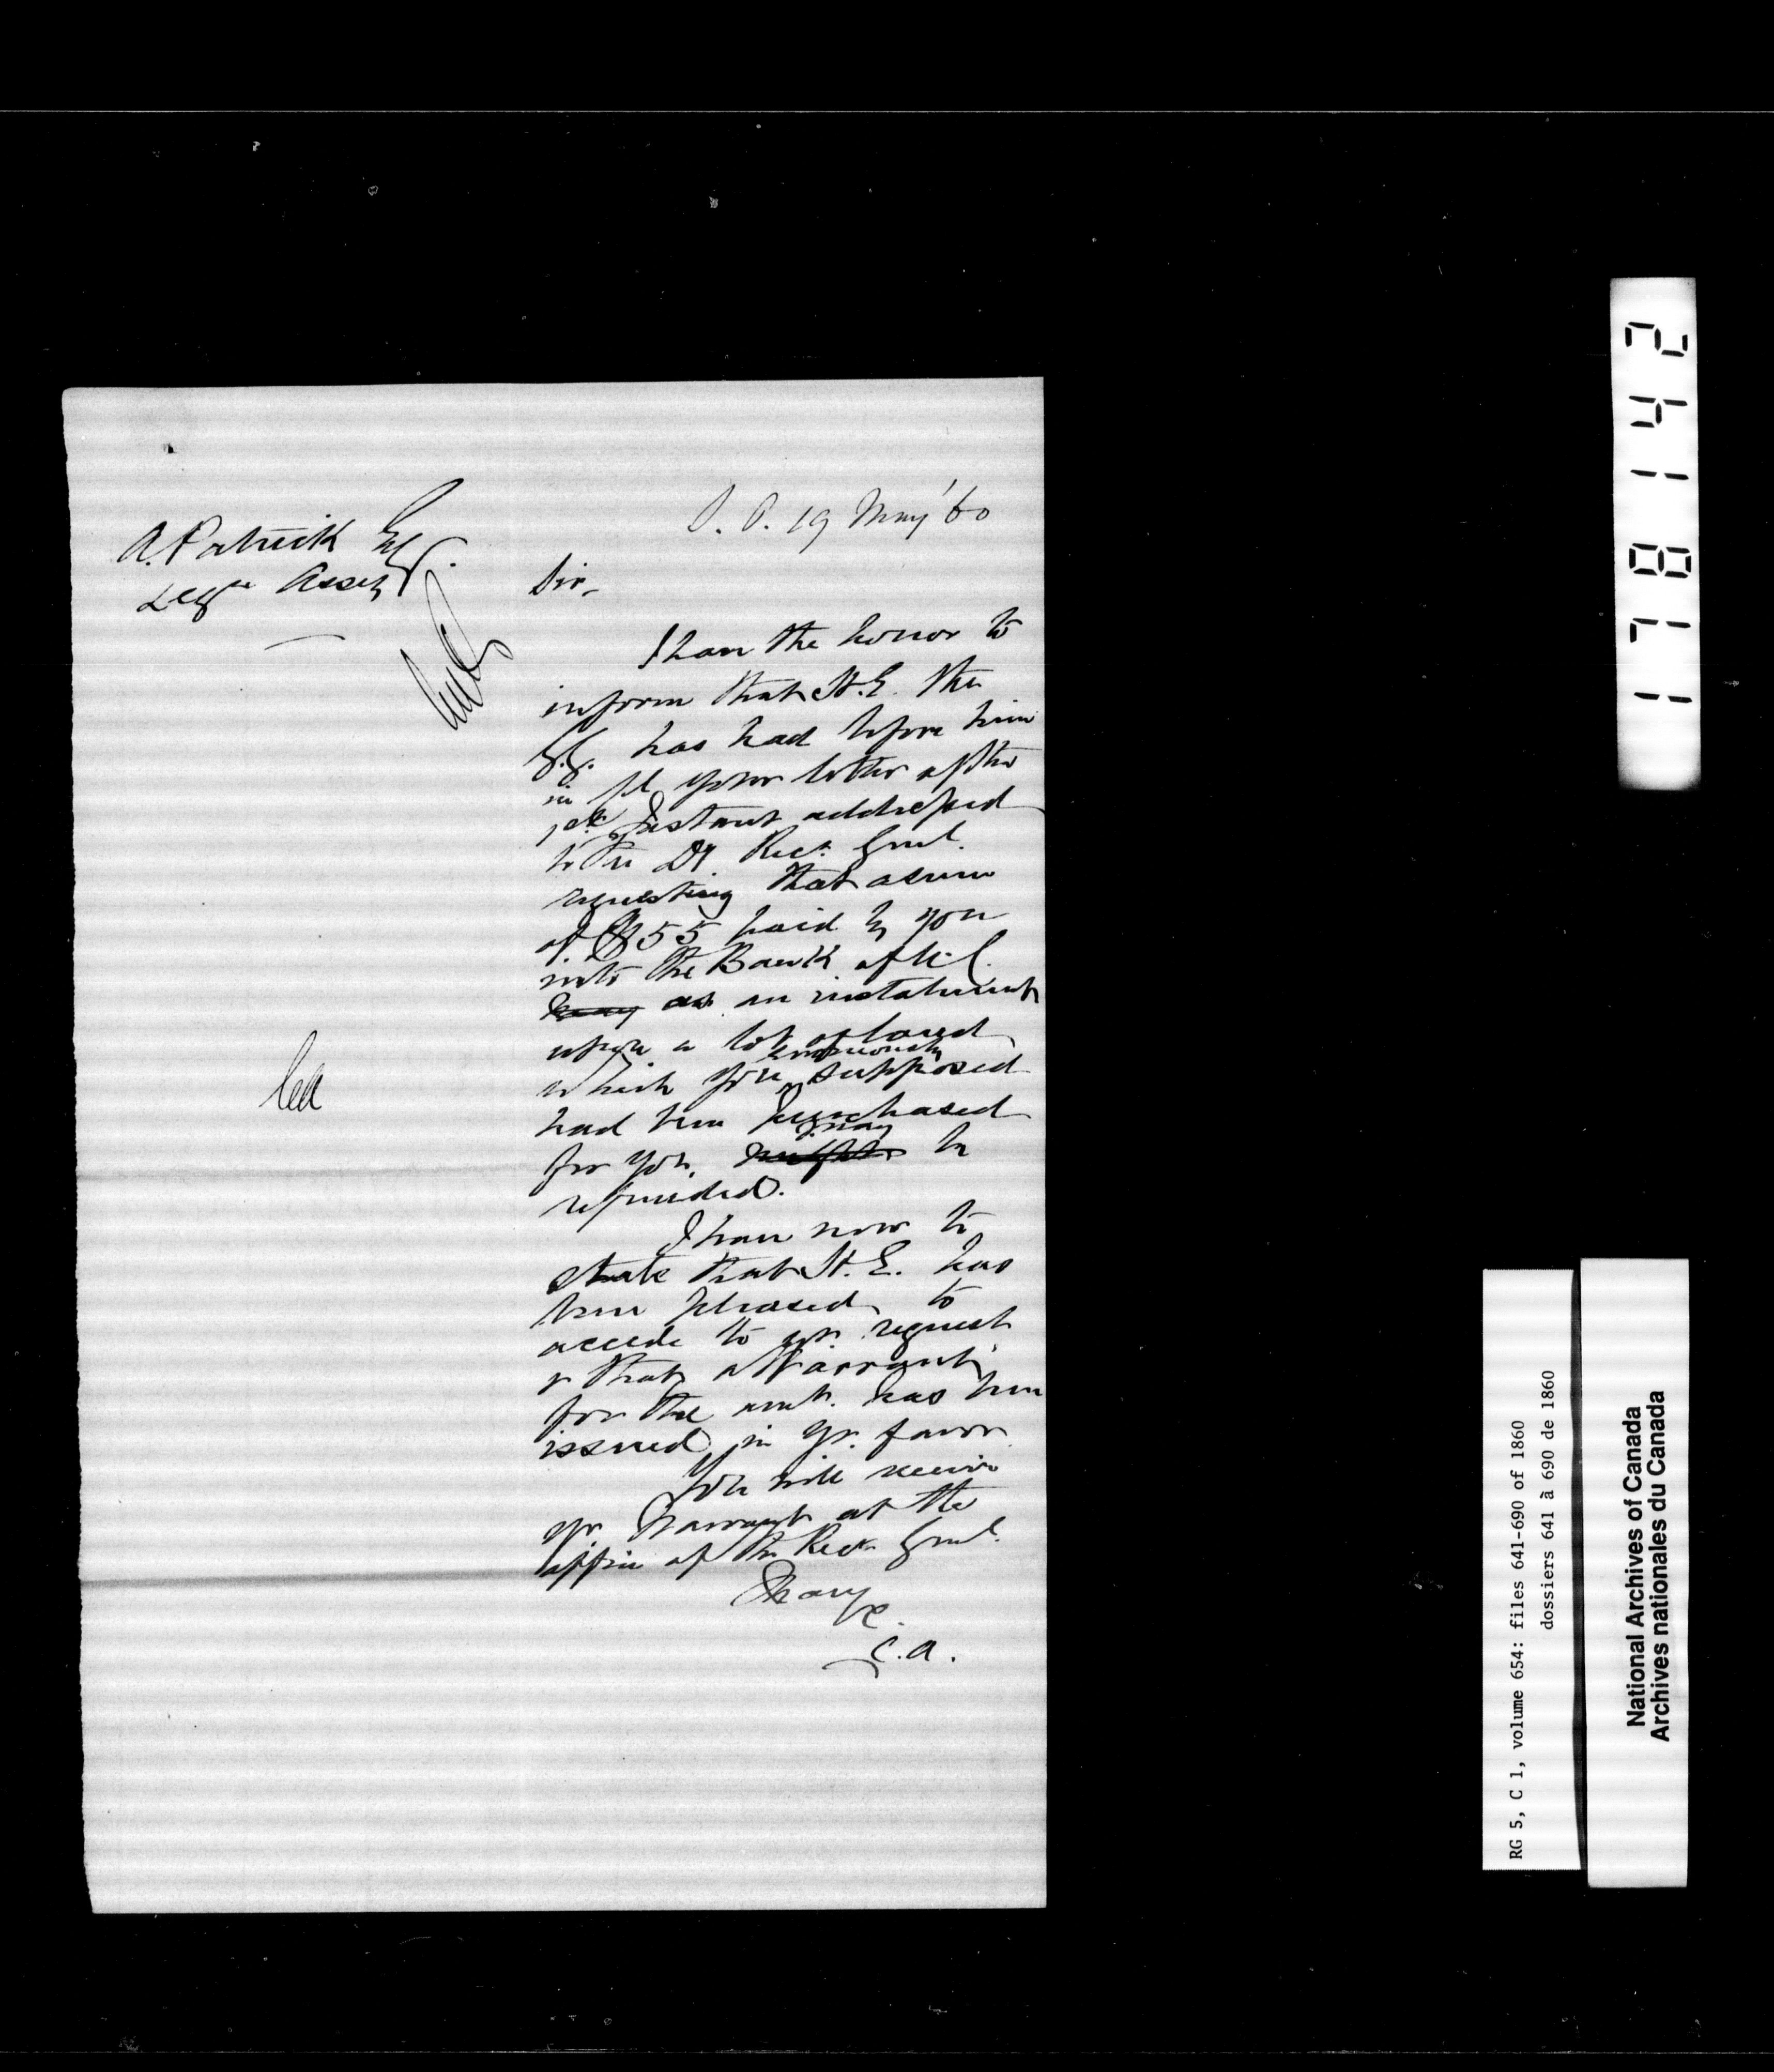 A. Patrick Esq.
Legve Assey
S.O. 19 May '60
Sir,
I have the honor to
inform that H.E. the
G.G. has had before him
in Cl your letter of the
1st Instant addressed
to the Dy. Recr. Genl.
requesting that a sum
of $55 paid by you
into the Bank of U.C.
as an instalment
upon a lot of land
which you erroneously supposed
had been purchased
for you, may be
refunded.
I have now to
state that H.E. has
been pleased to
accede to yr. request
& that a Warrant
for the amt. has been
issued in yr. favor
You will receive
yr. Warrant at the
office of the Recr. Genl.
I have
&c.
C.A.
241871
RG 5, C 1, volume 654: files 641-690 of 1860
dossiers 641 à 690 de 1860
National Archives of Canada
Archives nationales du Canada